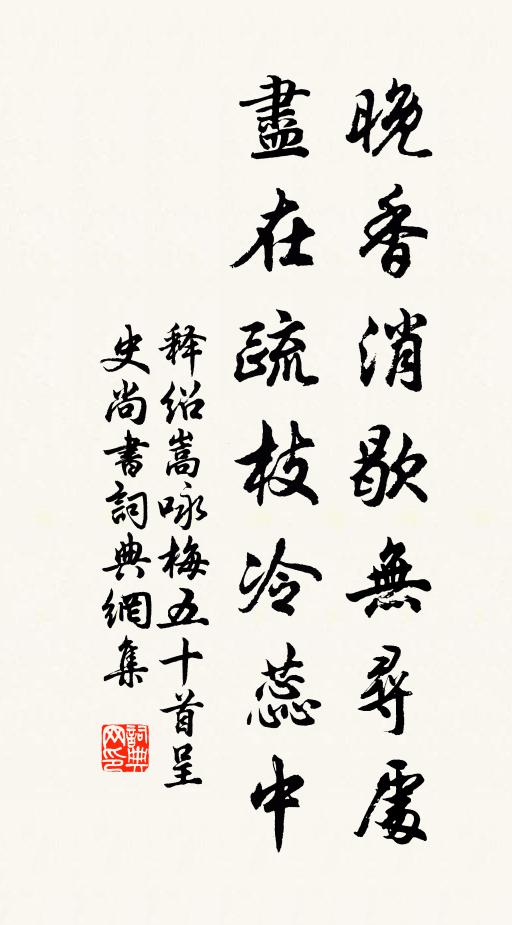 晚香消歇無尋處
盡在疏枝冷蕊中
释绍嵩咏梅五十首呈
史尚書詞典網集
詞典
网印